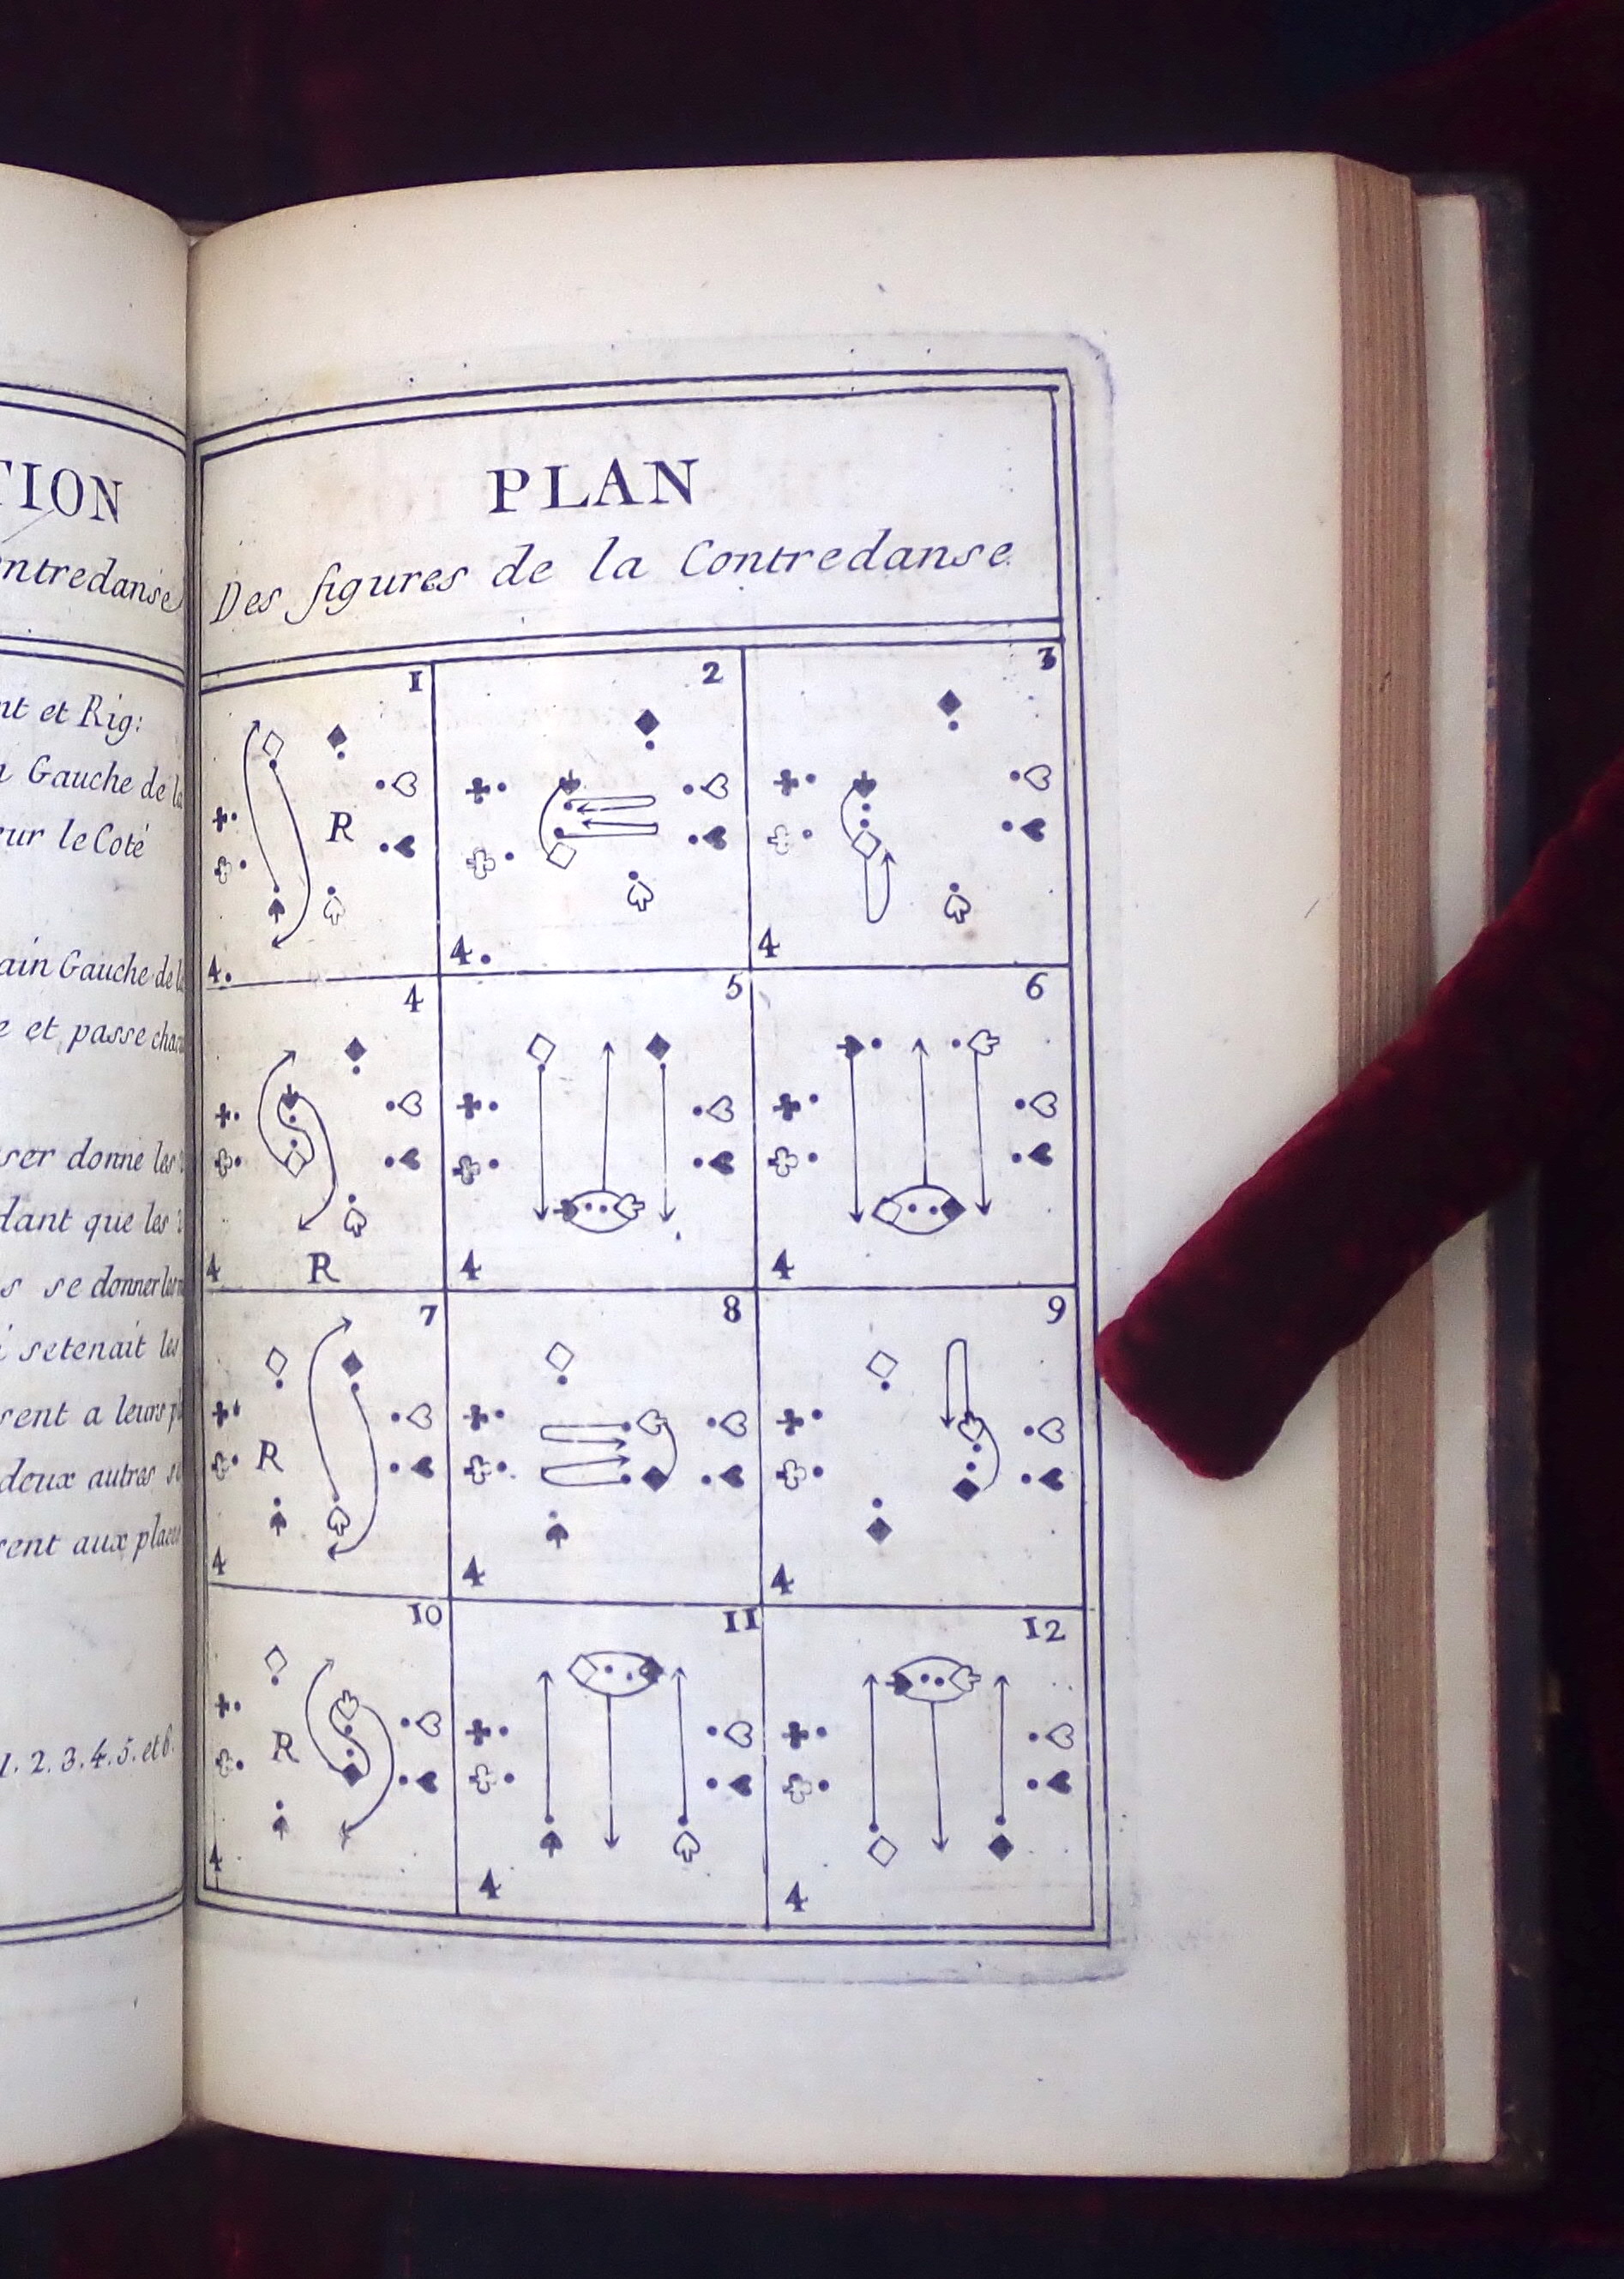 TION
ntredanse
nt et Rig:
Gauche de la
ur le Coté
ain Gauche de
e et passe
ser donne les
dant que les
s se donner
setenait les
sent a leurs
deux autres
rent aux places
1. 2. 3. 4. 5. et 6.
PLAN
Des figures de la Contredanse
1 2 3
R
4. 4. 4
4 5 6
4 R 4 4
7 8 9
R
4 4 4
10 11 12
R
4 4 4